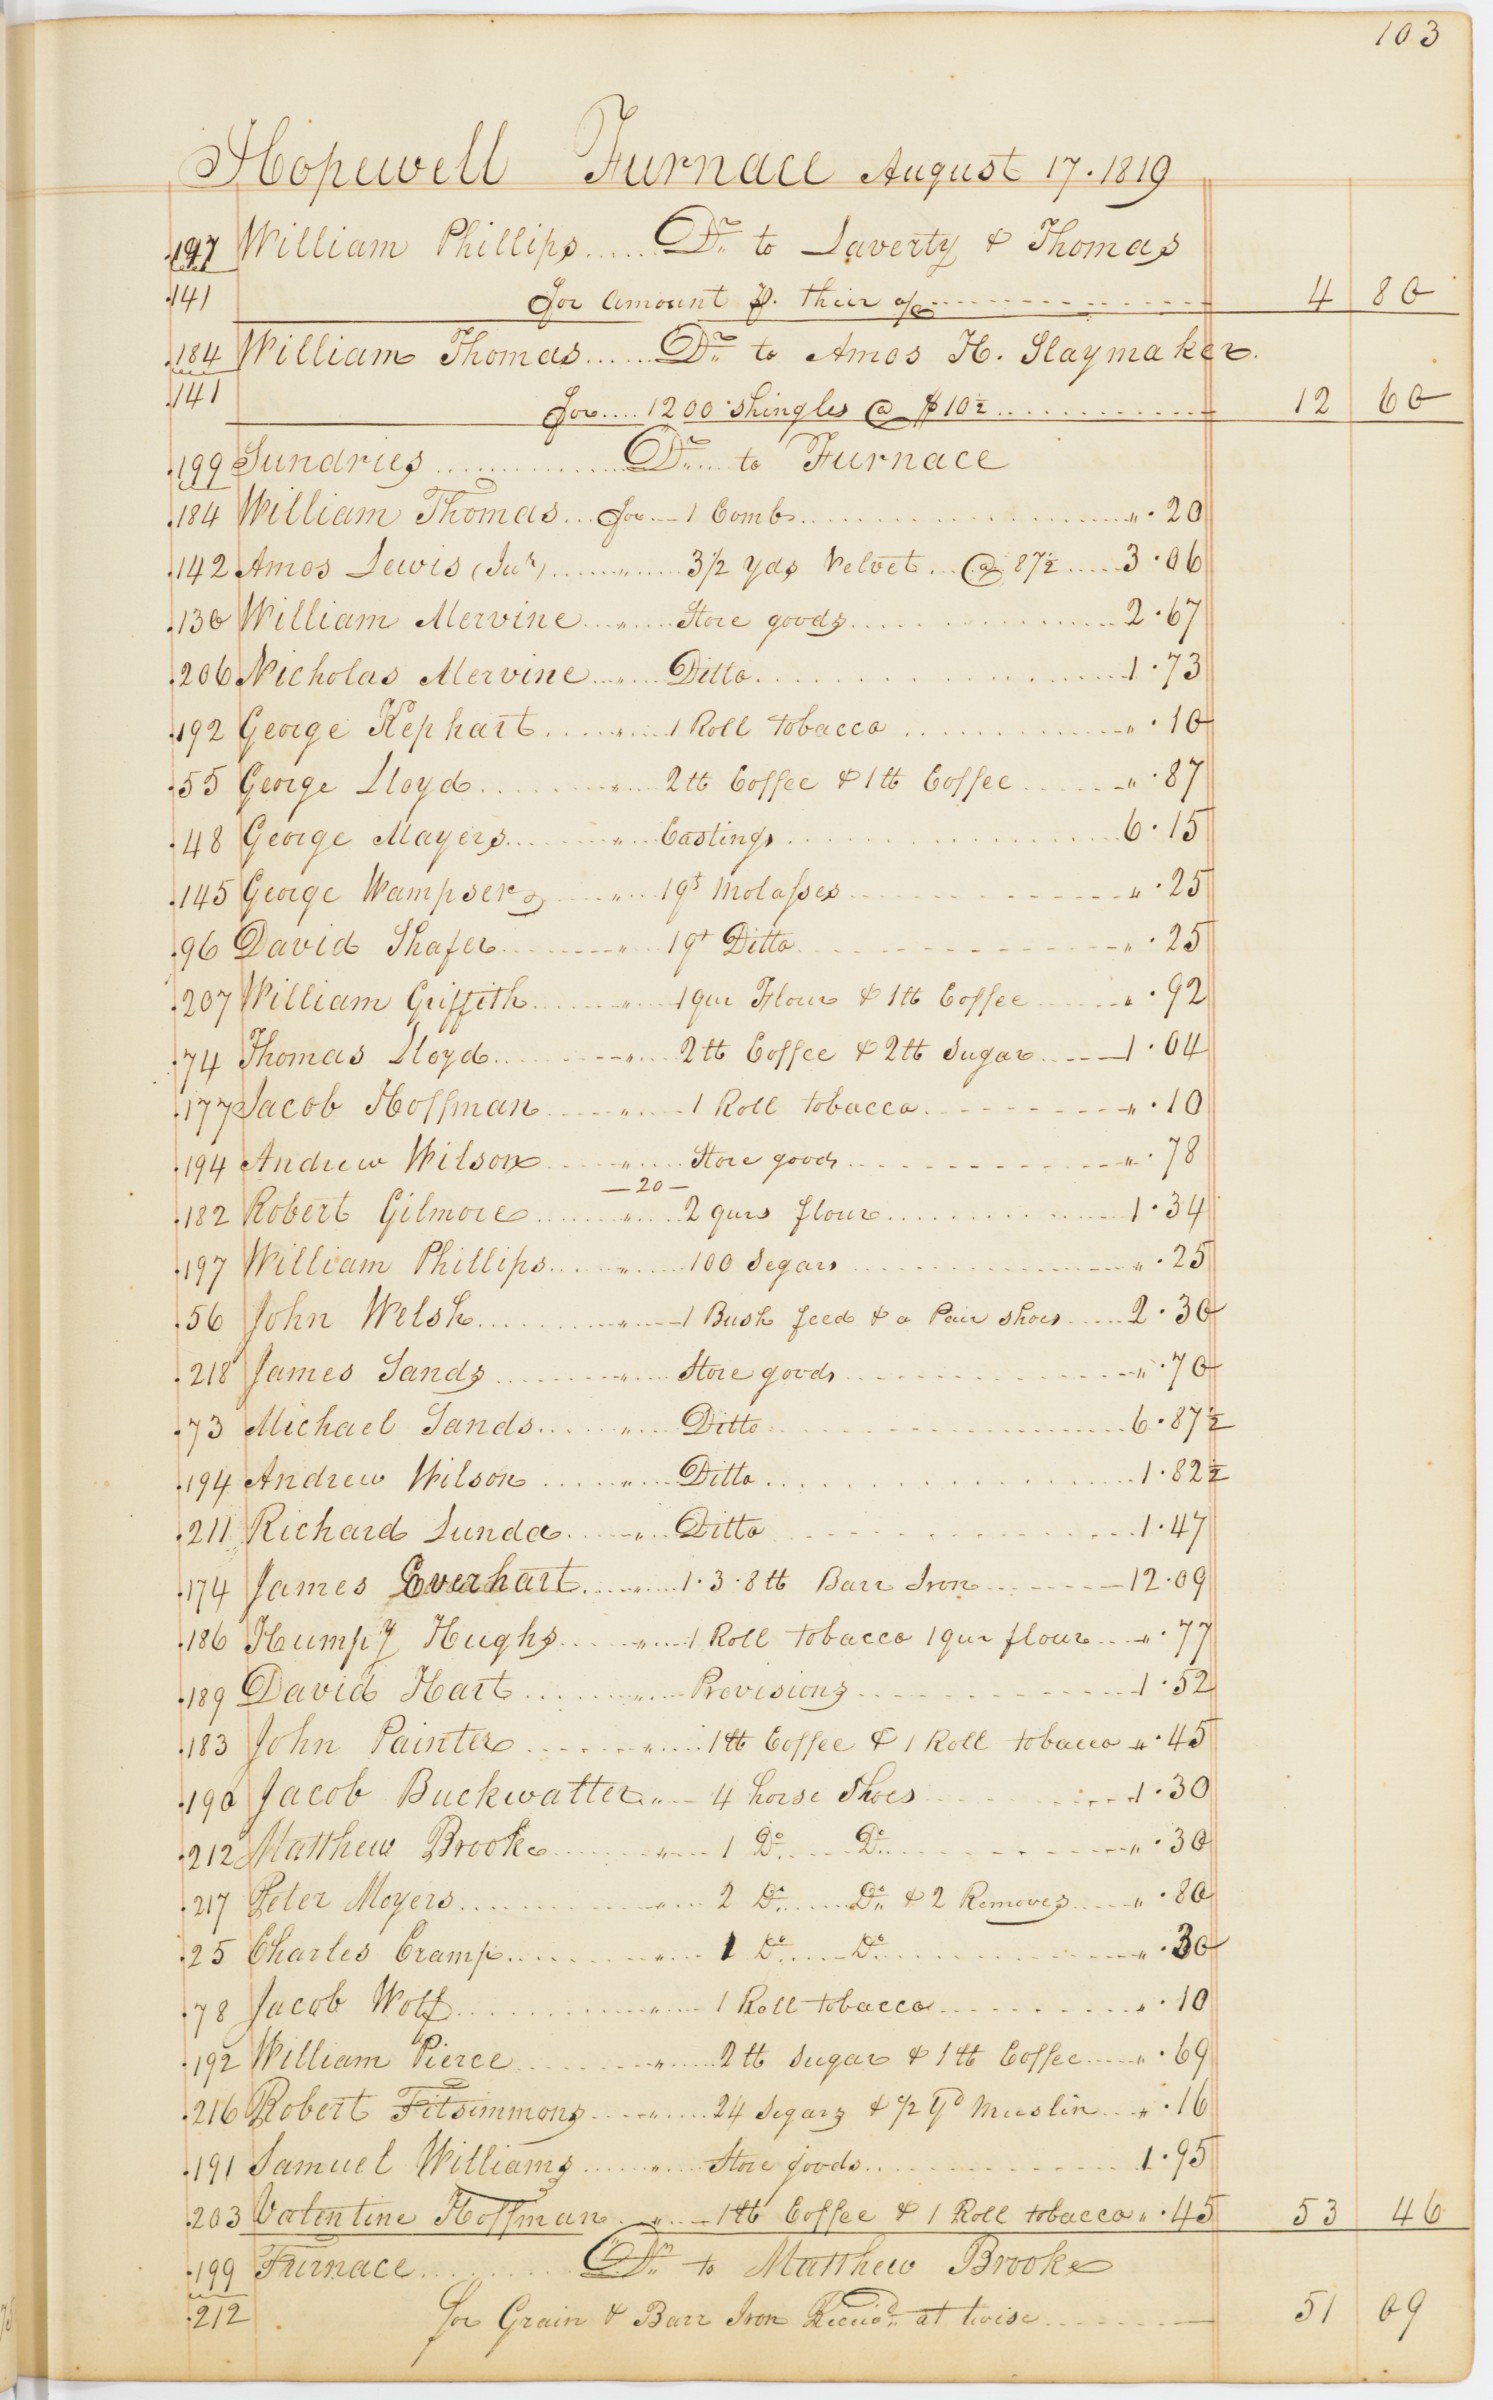 103
Hopewell Furnace August 17. 1819
197 William Phillips ...... Dr. to Laverty & Thomas
141 for amount p. their a/c ............ 4 80
184 William Thomas ...... Dr. to Amos H. Slaymaker.
141 for .... 1200 Shingles @ $10½ ............ 12 60
199 Sundries ............ Dr. ... to Furnace
184 William Thomas ... for ... 1 Comb ............ " . 20
142 Amos Lewis (Junr) ...... " ...... 3½ yds Velvet .. @ 87½ ..... 3 . 06
130 William Mervine ... " ..... Store goods ............ 2 . 67
206 Nicholas Mervine ... " .... Ditto ............ 1 . 73
192 George Kephart ...... " .... 1 Roll tobacco ............ " . 10
55 George Lloyd ......... " .... 2 tt Coffee & 1 tt Coffee ...... " . 87
48 George Mayers ......... " ... Castings ............ 6 . 15
145 George Wampser ...... " ... 1 qt Molasses ............ " . 25
96 David Shafer ......... " ... 1 qt Ditto ............ " . 25
207 William Griffith ......... " .... 1 qur Flour & 1 tt Coffee ...... " . 92
74 Thomas Lloyd ......... " .... 2 tt Coffee & 2 tt Sugar ...... 1 . 04
177 Jacob Hoffman ...... " .... 1 Roll tobacco ............ " . 10
194 Andrew Wilson ...... " ..... Store goods ............ " . 78
— 20 —
182 Robert Gilmore ......... " .... 2 qurs flour ............ 1 . 34
197 William Phillips ...... " ..... 100 Segars ............ " . 25
56 John Welsh ......... " .... 1 Bush feed & a Pair Shoes ..... 2 . 30
218 James Sands ......... " .... Store goods ............ " . 70
73 Michael Sands ...... " .... Ditto ............ 6 . 87½
194 Andrew Wilson ...... " ... Ditto ............ 1 . 82½
211 Richard Lunda ...... " ... Ditto ............ 1 . 47
174 James Everhart ..... " .... 1 . 3 . 8 tt Barr Iron ......... 12 . 09
186 Humpy Hughs ...... " ... 1 Roll tobacco 1 qur flour ... " . 77
189 David Hart ......... " .... Provisions ............ 1 . 52
183 John Painter ......... " ..... 1 tt Coffee & 1 Roll tobacco " . 45
190 Jacob Buckwatter .. " ... 4 horse Shoes ............ 1 . 30
212 Matthew Brooke ......... " .... 1 Do. .... Do. ............ " . 30
217 Peter Moyers ............ " .... 2 Do. .... Do. & 2 Removes ..... " . 80
25 Charles Cramp ......... " .... 1 Do. .... Do. ............ " . 30
78 Jacob Wolf ............ " .... 1 Roll tobacco ............ " . 10
192 William Pierce ......... " ..... 2 tt Sugar & 1 tt Coffee ..... " . 69
216 Robert Fitsimmons ...... " ..... 24 Segars & ½ yd Muslin ... " . 16
191 Samuel Williams ...... " .... Store goods ............ 1 . 95
203 Valentine Hoffman .. " ... 1 tt Coffee & 1 Roll tobacco " . 45 53 46
199 Furnace ......... Dr. to Matthew Brooke
212 for Grain & Barr Iron Receivd. at twise ............ 51 09